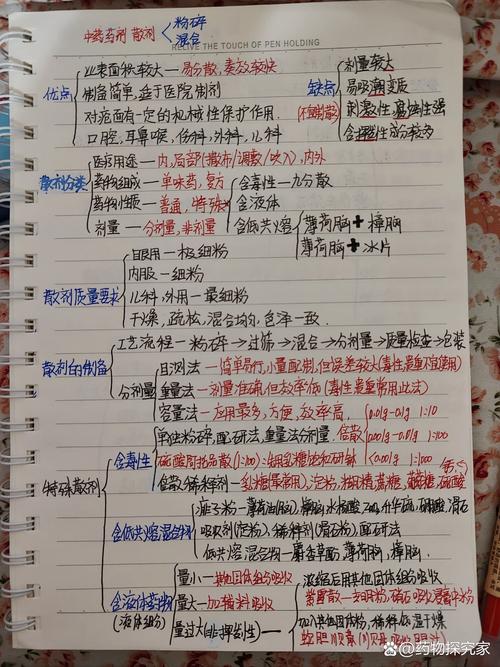 中药药剂 散剂 粉碎
混合
RELIVE THE TOUCH OF PEN HOLDING
优点
比表面积较大—易分散,奏效较快
制备简单,适于医院制剂
对疮面有一定的机械性保护作用.
口腔,耳鼻喉,伤科,外科,儿科
缺点
(不宜制散)
剂量较大
易吸潮变质
刺激性,腐蚀性强
含挥发性成分较多
散剂分类
医疗用途—内,局部(撒布/调敷/吹入),内外
药物组成—单味药,复方
药物性质—普通,特殊
剂量—分剂量,非剂量
含毒性—九分散
含液体
含低共熔
薄荷脑+樟脑
薄荷脑+冰片
散剂质量要求
眼用—极细粉
内服—细粉
儿科,外用—最细粉
干燥,疏松,混合均匀,色泽一致.
散剂的制备
工艺流程—粉碎→过筛→混合→分剂量→质量检查→包装
分剂量
目测法—简单易行,小量配制,但误差较大(毒性贵重不宜使用)
重量法—剂量准确,但效率低(毒性贵重常用此法)
容量法—应用最多,方便,效率高,
特殊散剂
含毒性
单独粉碎,配研法,重量法分剂量.
倍散
0.01g-0.1g 1:10
0.001g-0.01g 1:100
<0.001g 1:1000
硫酸阿托品散(1:100):
倍散(稀释剂)—乳糖(最常用),淀粉,糊精,蔗糖,葡萄糖,硫酸钙
含低共熔混合物
痱子粉—薄荷油(脑),樟脑,水杨酸,
吸收剂(淀粉),稀释剂(滑石粉),配研法
低共熔混合物—麝香草酚,薄荷脑,樟脑.
含液体药物
(液体组分)
量小—其他固体组分吸收
量大—加辅料吸收
量过大(非挥发性)—
浓缩后用其他固体组分吸收
加入其他固体粉,稀释,低温干燥